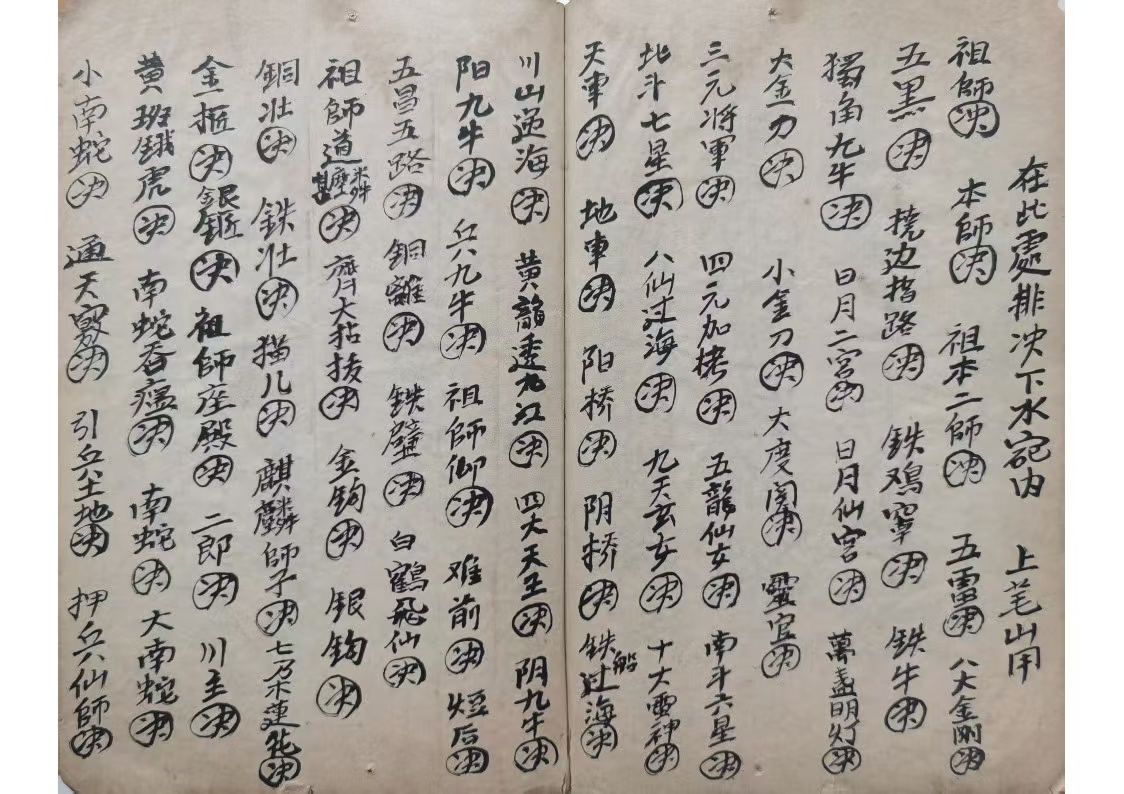 在此處排决下水宛内 上羊山用
祖師决 本師决 祖本二師决 五雷决 八大金剛决
五黑决 撓边指路决 鉄鳮罩决 鉄牛决
獨角九牛决 日月二宫决 日月仙宫决 萬盏明灯决
大金刀决 小金刀决 大度阁决 靈官决
三元将軍决 四元加拷决 五龍仙女决 南斗六星决
北斗七星决 八仙过海决 九天玄女决 十大雷神决
天車决 地車决 阳桥决 阴桥决 鉄船过海决
川山逆海决 黄龍透九江决 四大天王决 阴九牛决
阳九牛决 兵九牛决 祖師仰决 难前决 短后决
五昌五路决 銅籬决 鉄壁决 白鶴飛仙决
祖師道决 齊大粘接决 金钩决 银钩决
銅壮决 鉄壮决 猫儿决 麒麟師子决 七乃木蓮花决
金框决 銀框决 祖師座殿决 二郎决 川主决
黄班餓虎决 南蛇吞瘟决 南蛇决 大南蛇决
小南蛇决 通天竅决 引兵土地决 押兵仙師决